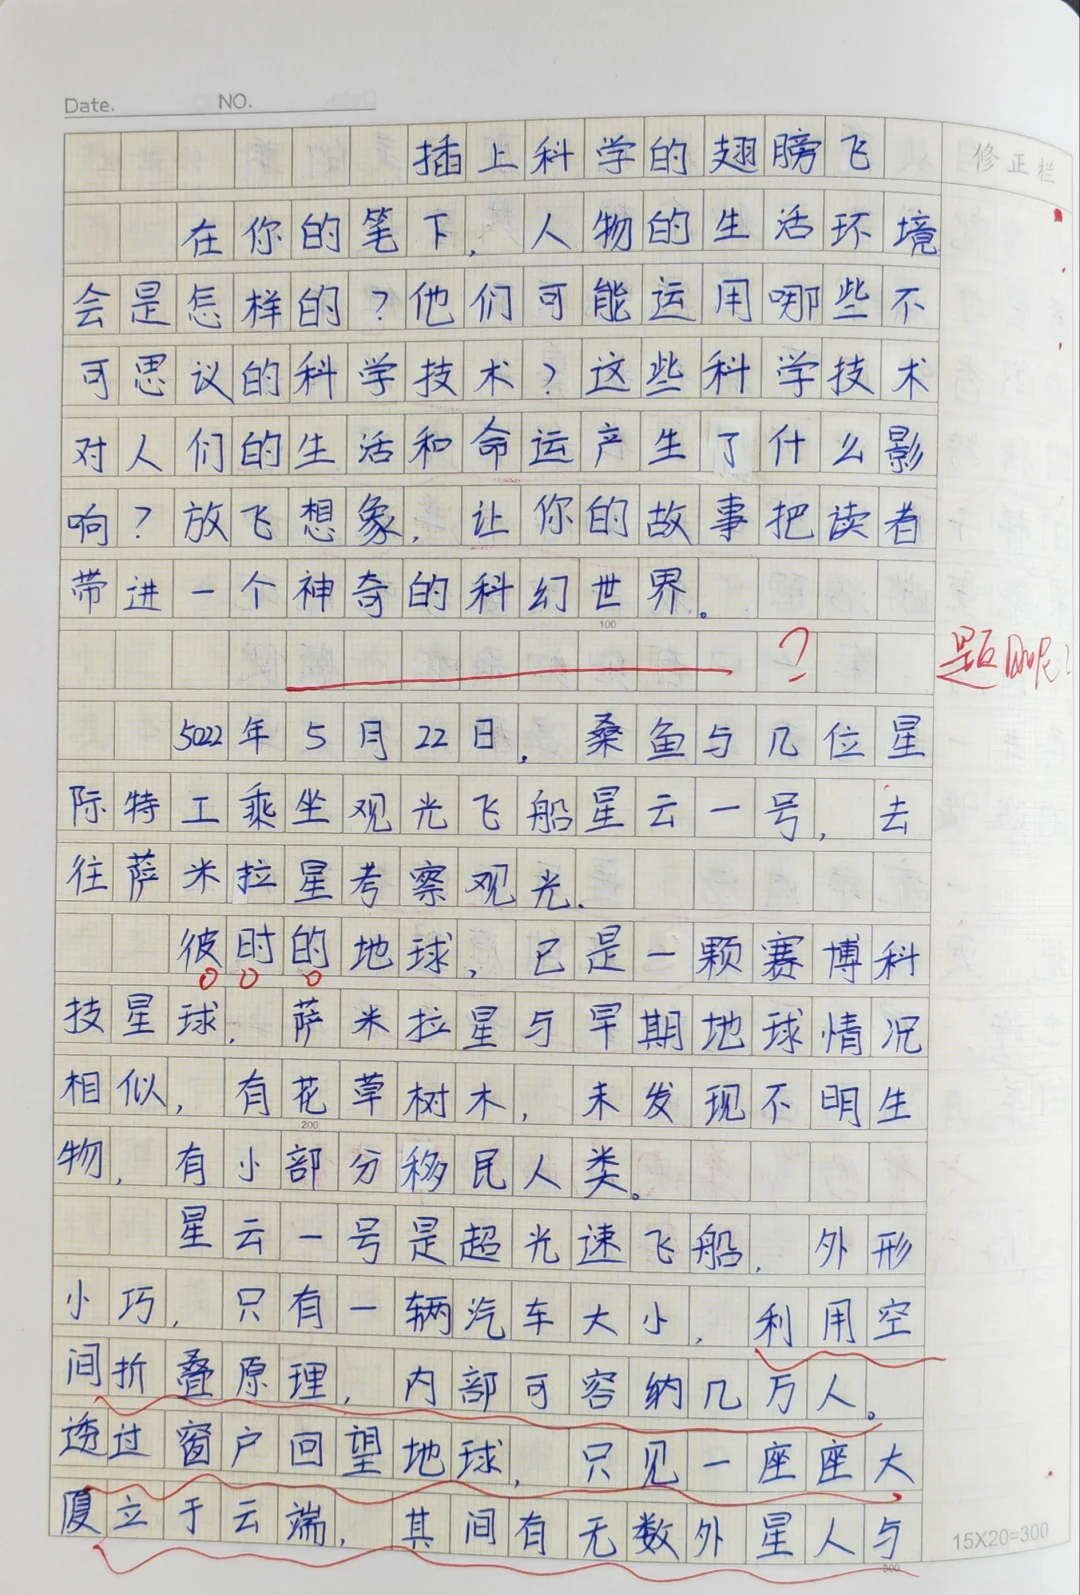 Date. NO.
插上科学的翅膀飞
修正栏
在你的笔下,人物的生活环境
会是怎样的?他们可能运用哪些不
可思议的科学技术?这些科学技术
对人们的生活和命运产生了什么影
响?放飞想象,让你的故事把读者
带进一个神奇的科幻世界。
100
? 题呢?
5022年5月22日,桑鱼与几位星
际特工乘坐观光飞船星云一号,去
往萨米拉星考察观光.
彼时的地球,已是一颗赛博科
技星球.萨米拉星与早期地球情况
相似,有花草树木,未发现不明生
200
物,有小部分移民人类。
星云一号是超光速飞船,外形
小巧,只有一辆汽车大小,利用空
间折叠原理,内部可容纳几万人。
透过窗户回望地球,只见一座座大
厦立于云端,其间有无数外星人与
15X20=300
300